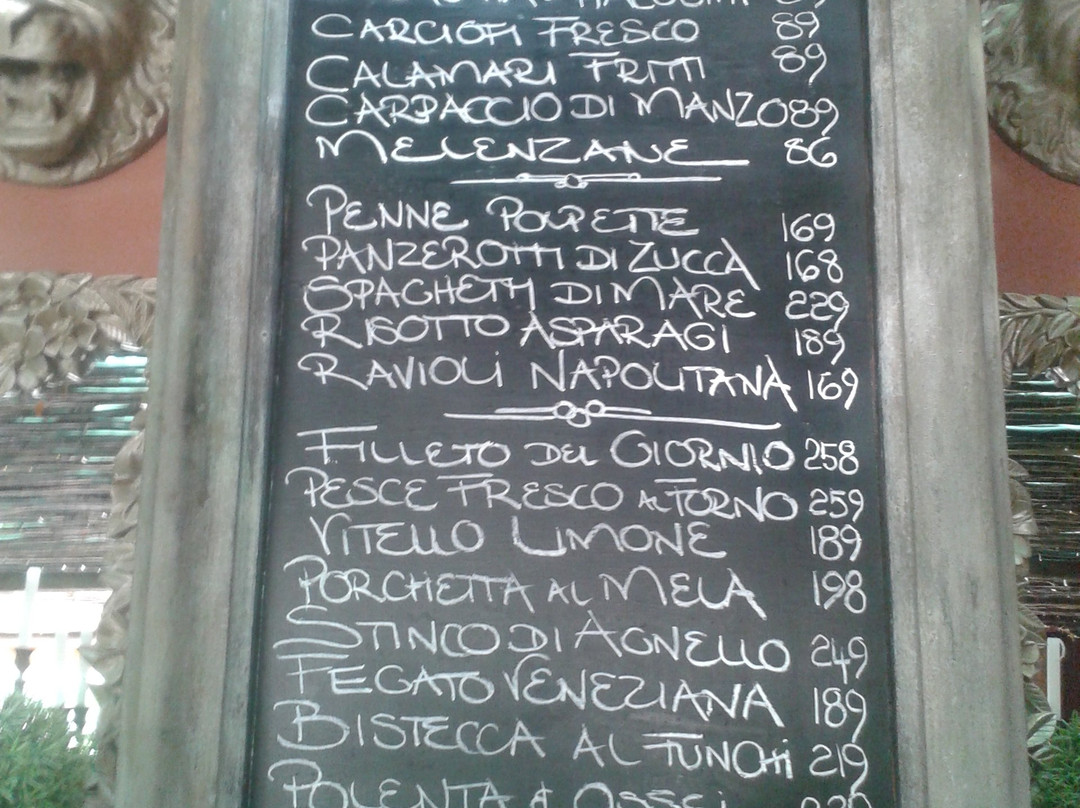 CARCIOFI FRESCO 89
CALAMARI FRITTI 89
CARPACCIO DI MANZO 89
MELENZANE 86
PENNE POLPETTE 169
PANZEROTTI DI ZUCCA 168
SPAGHETTI DI MARE 229
RISOTTO ASPARAGI 189
RAVIOLI NAPOLITANA 169
FILLETO DEL GIORNIO 258
PESCE FRESCO AL FORNO 259
VITELLO LIMONE 189
PORCHETTA AL MELA 198
STINCO DI AGNELLO 249
FEGATO VENEZIANA 189
BISTECCA AL FUNGHI 219
POLENTA & OSSEI